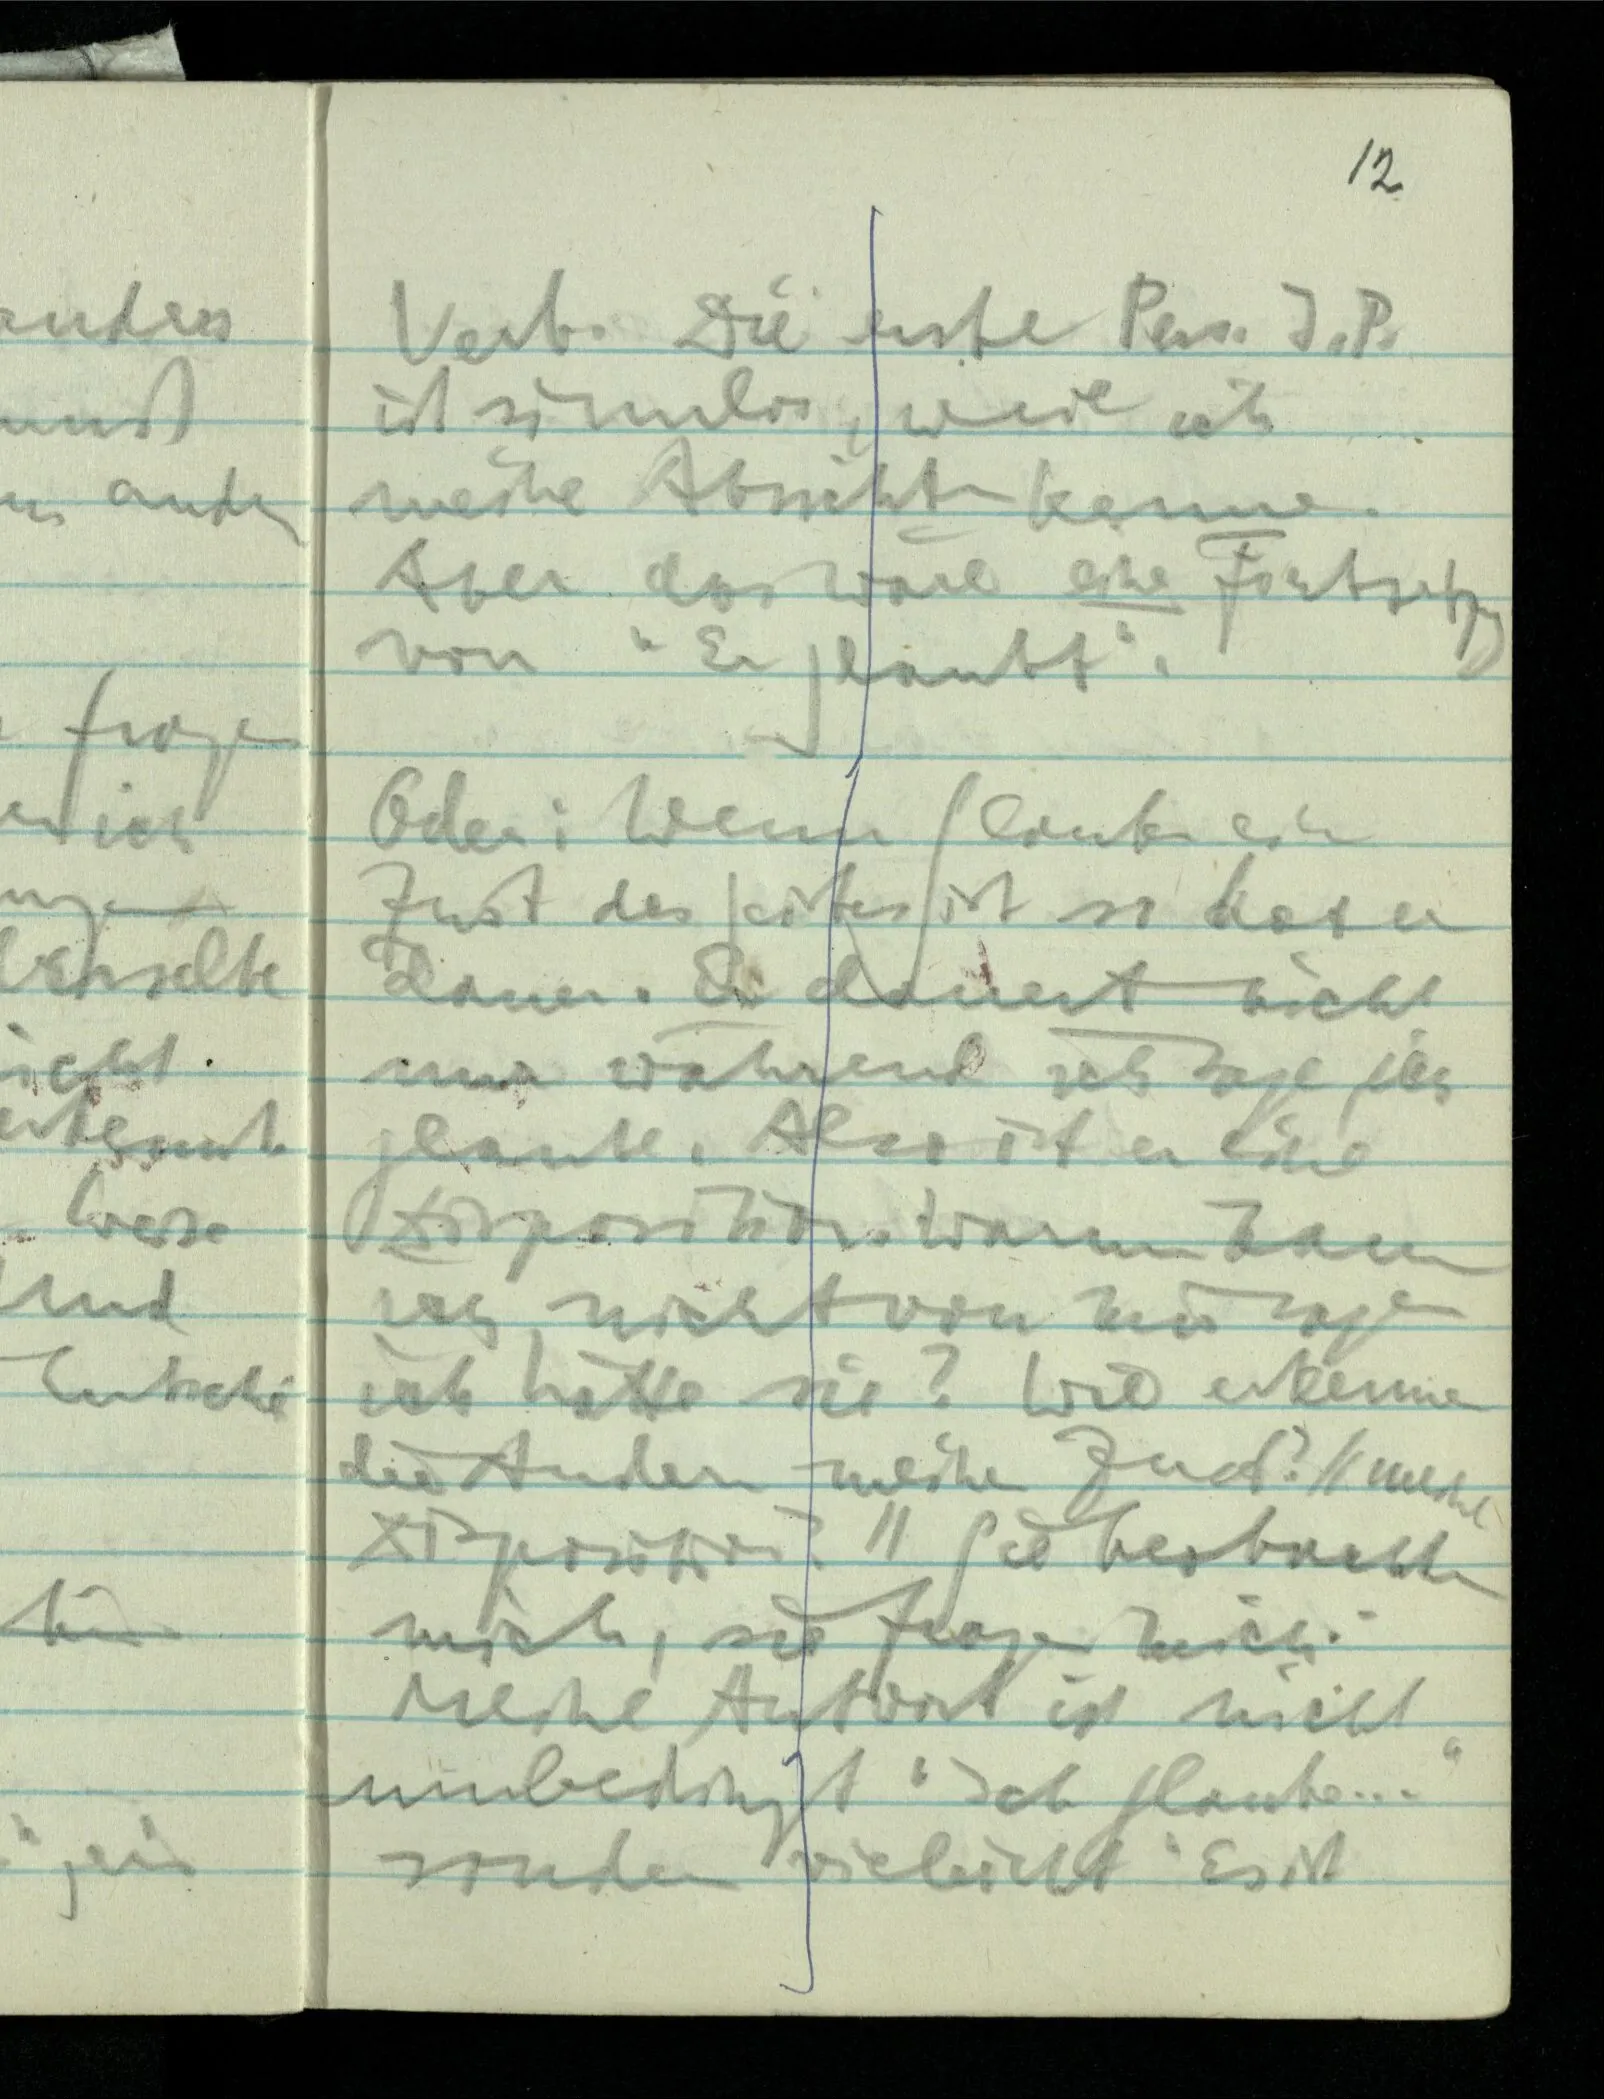 12
anders
muß
andern
fragen
ich
derselbe
nicht
Weise
und
Verb. Die erste Pers. I.P.
ist sinnlos, weil ich
meine Absichten kenne.
Aber das wäre eine Fortsetzung
von "Er glaubt".
Oder: Wenn Glauben ein
Zust des Geistes ist so hat er
Dauer. Er dauert nicht
nur während ich sage ich
glaube. Also ist er eine
Disposition. Warum kann
ich nicht von mir sagen
ich hätte sie? Wie erkennen
die Andern meine Zust? // meine
Disposition? // Sie beobachten
mich, sie fragen mich.
Meine Antwort ist nicht
unbedingt "Ich glaube..."
sondern vieleicht "Es ist